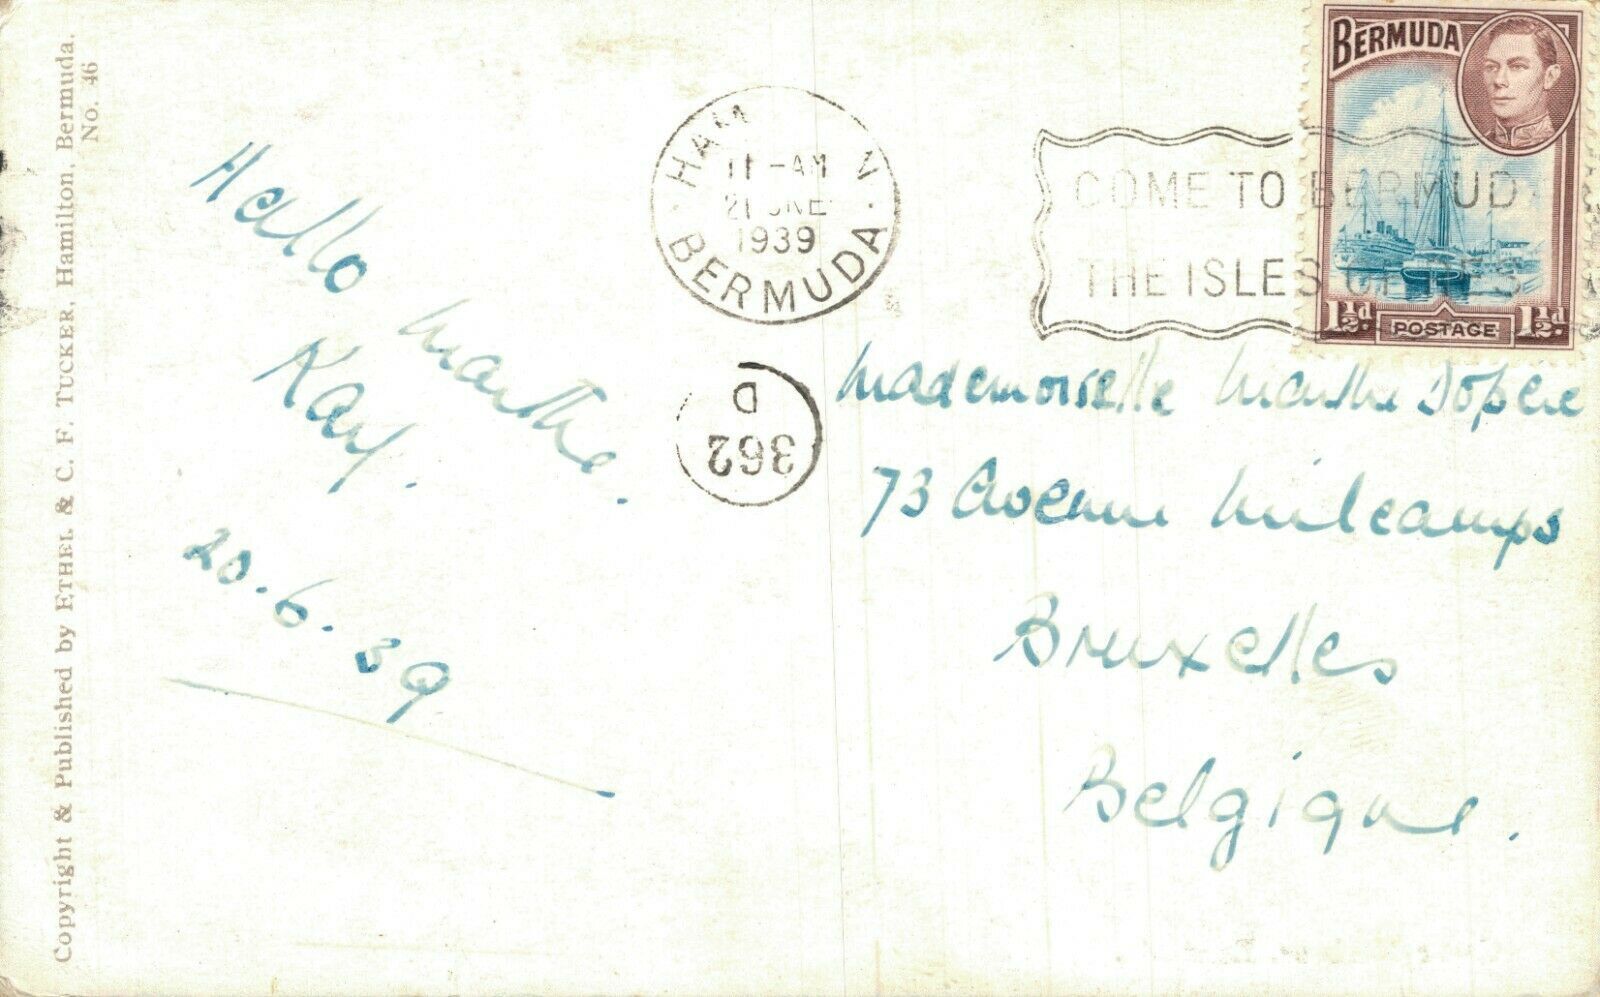 Copyright & Published by ETHEL & C. F. TUCKER, Hamilton, Bermuda.
No. 46
Hallo Marthe.
Kay.
20.6.39
HAM N
11-AM
21 JNE
1939
BERMUDA
362
D
COME TO BERMUD
THE ISLES OF RES
BERMUDA
1½d POSTAGE 1½d
Mademoiselle Marthe Dopére
73 Avenue Milcamps
Bruxelles
Belgique.